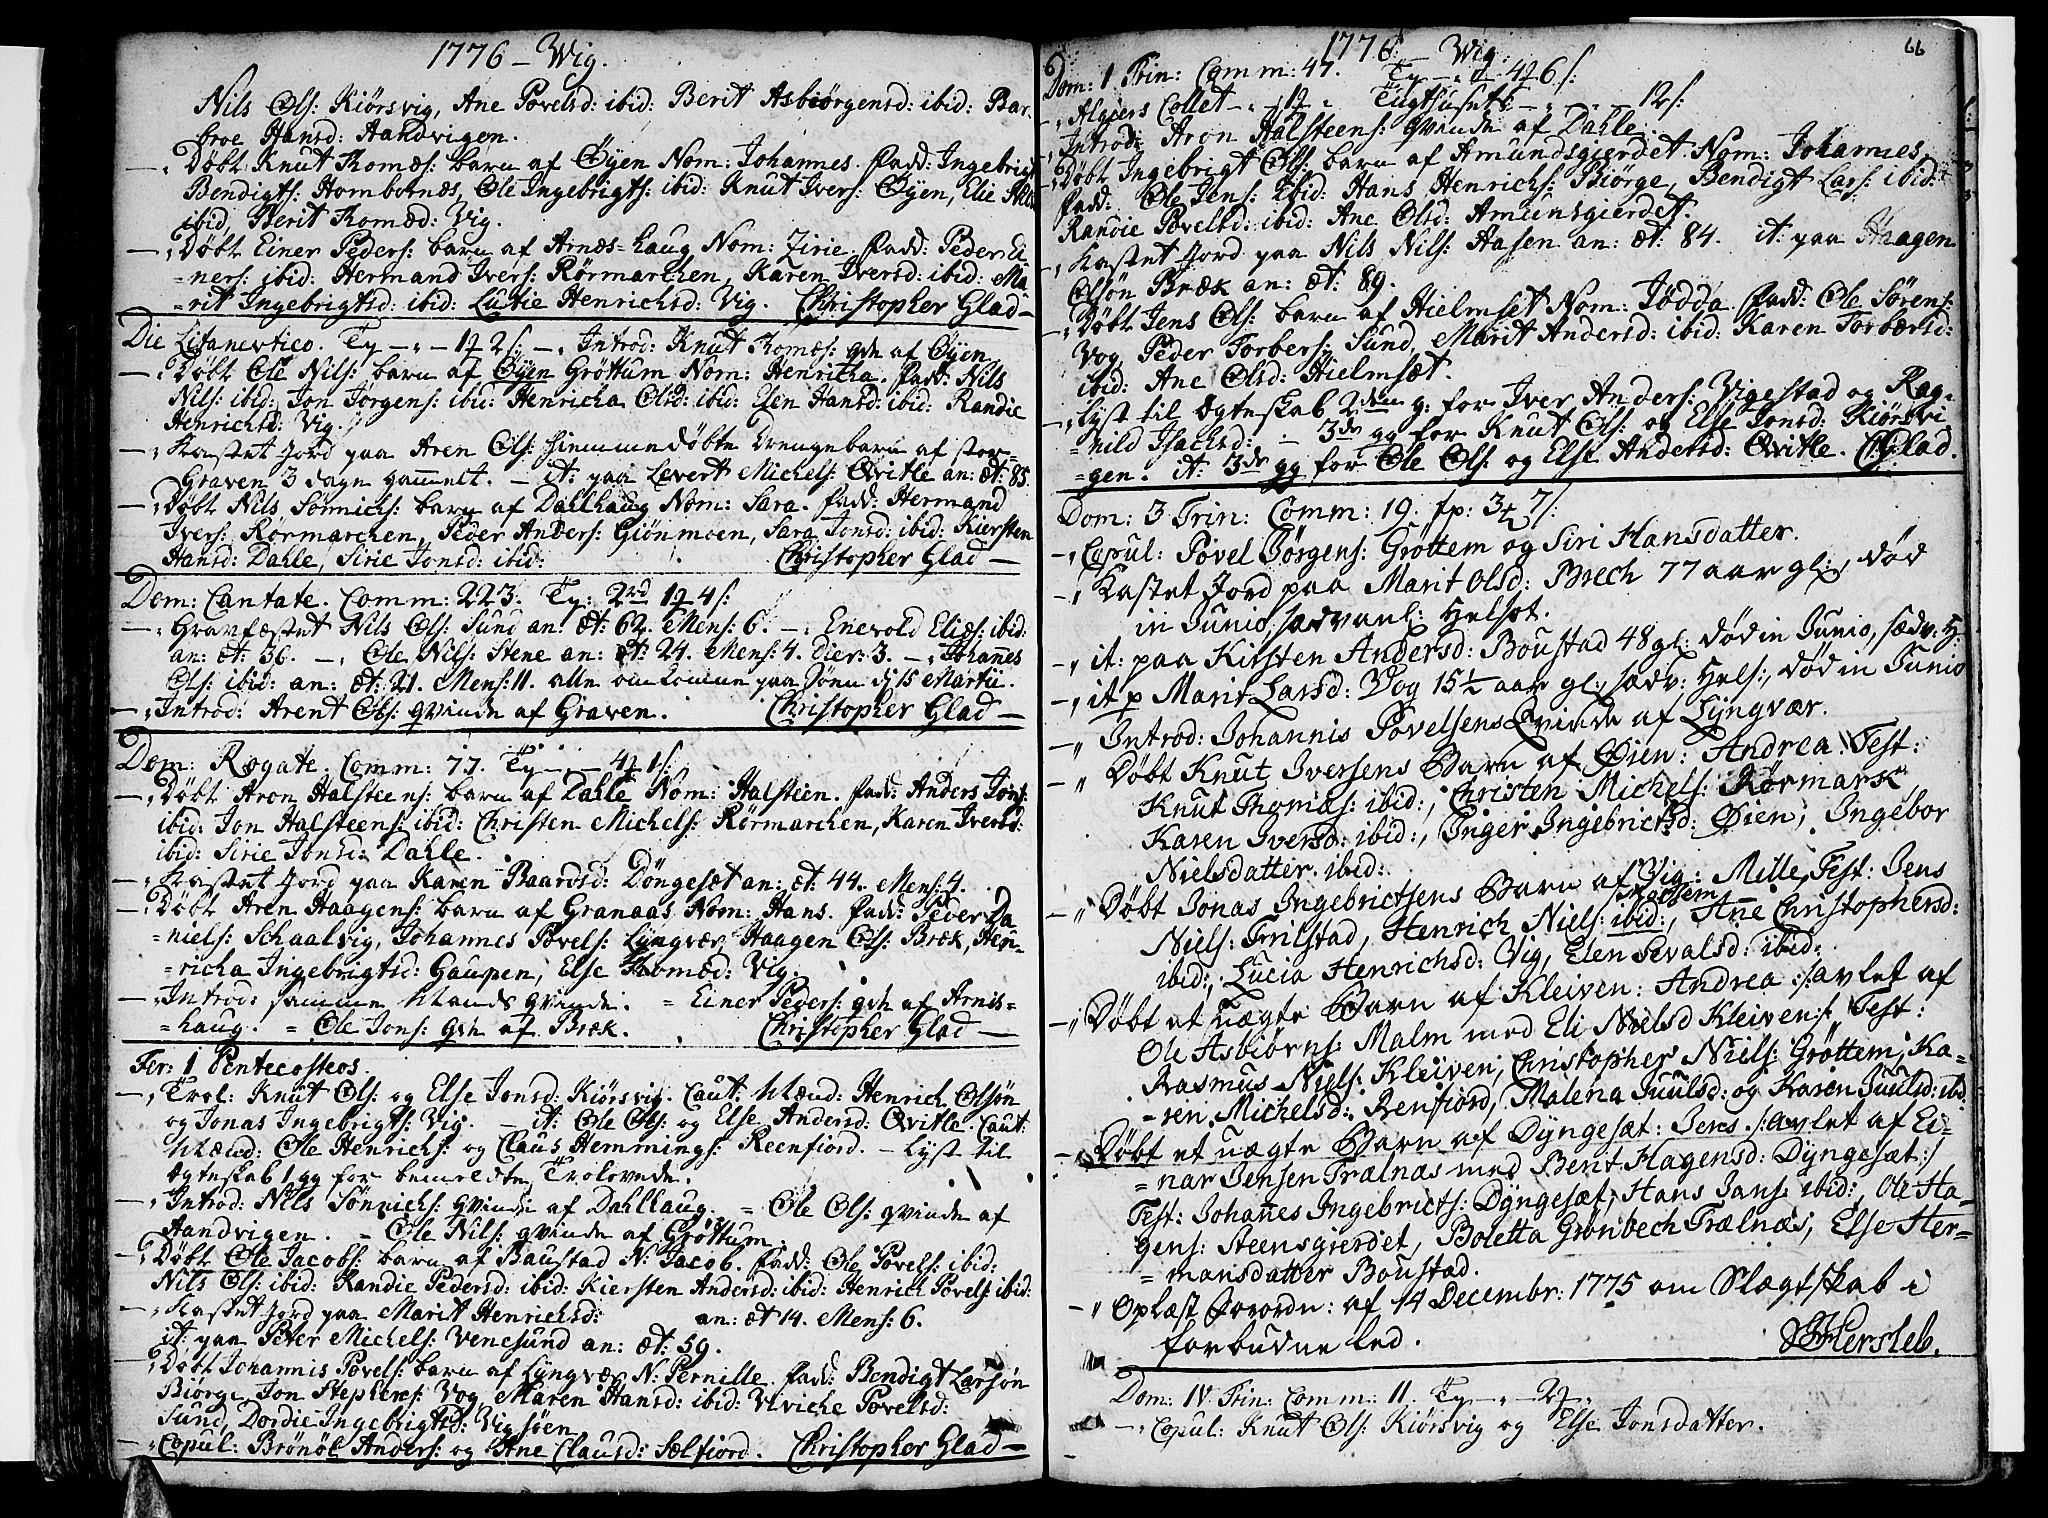 1776 - Wig.
Nils Ols: Kiørsvig, Ane Povelsd: ibid: Berit Asbiørgensd: ibid: Bar-
broe Hansd: Aandvigen.
-,, Døbt Knut Thomæs: barn af Øyen Nom: Johannes. fadd: Ingebrigt
Bendigts: Hombornæs, Ole Ingebrigts: ibid: Knut Ivers: Øyen, Elie
ibid, Berit Thomæd: Vig.
-,, Døbt Einer Peders: barn af Arnæs-haug Nom: Zirie. fadd: Peder Ei
=ners: ibid: Hermand Ivers: Rørmarchen, Karen Iversd: ibid: Ma
=rit Ingebrigtsd: ibid: Lucie Henrichsd: Vig. Christopher Glad-
Die Litanevtico. Ty -,,- 1 2 s: -,, Introd: Knut Thomæs: qvn af Øyen
-,, Døbt Ole Nils: barn af Øyen Grøttum Nom: Henricha. fadd: Nils
Nils: ibid: Jon Jørgens: ibid: Henricha Olsd: ibid: Elen Hansd: ibid: Randie
Henrichsd: Vig.
-,, Kastet Jord paa Aren Ols: hiemmedøbte Drengebarn af stor-
Graven 3 dage gammel. - it: paa Levert Michels: Qvitle an: æt: 85.
-,, Døbt Nils Sønnichs: barn af Dahlhaug Nom: Sara. fadd: Hermand
Ivers: Rørmarchen, Peder Anders: Giønmoen, Sara Jonsd: ibid: Kiersten
Hansd: Dahle, Sirie Jonsd: ibid: Christopher Glad -
Dom: Cantate. Comm: 223. Ty: 2rd 1 4 s:
-,, Gravfæstet Nils Ols: Sund an: æt: 62. Mens: 6. -,, Enevold Eliæs: ibid:
an: æt: 36. -,, Ole Nils: Stene an: æt: 24. Mens: 4. dier: 3. -,, Johannes
Ols: ibid: an: æt: 21. Mens: 11. alle omkomne paa Søen d 15 Martii.
-,, Introd: Arent Ols: qvinde af Graven. Christopher Glad -
Dom: Rogate. Comm: 77. Ty -,- 4 1 s:
-,, Døbt Aron Halsteens: barn af Dahle Nom: Halsteen. fadd: Anders Jons:
ibid: Jon Halsteens: ibid: Christen Michels: Rørmarchen, Karen Iversd:
ibid: Sirie Jonsd: Dahle.
-,, Kastet Jord paa Karen Baardsd: Døngesæt an: æt: 44. Mens: 4.
-,, Døbt Aren Haagens: barn af Granaas Nom: Hans. fadd: Peder Da
=niels: Schaalvig, Johannes Povels: Lyngvær, Haagen Ols: Bræk, Hen-
=richa Ingebrigtsd: Gaupen, Else Thomæd: Vig.
-,, Introd: samme Mands qvinde. = Einer Peders: qvn af Arnis-
=haug. = Ole Jons: qvn af Bræk. Christopher Glad -
Fer: 1 Pentecosteos.
-,, Trol: Knut Ols: og Else Jonsd: Kiørsvig. Caut: Mænd: Henrich Olsøn
og Jonas Ingebrigts: Vig. - it: Ole Ols: og Else Andersd: Qvitle. Caut:
Mænd: Ole Henrichs: og Claus Hemmings: Reenfiord. - Lyst til
Ægteskab 1 gg for bemeldte Trolovede.
-,, Introd: Nils Sønnichs: qvinde af Dahlhaug. = Ole Ols: qvinde af
Aandvigen. = Ole Nils: qvinde af Grøttum.
-,, Døbt Ole Jacobs: barn af Baustad N: Jacob. fadd: Ole Povels: ibid:
Nils Ols: ibid: Randie Pedersd: ibid: Kiersten Andersd: ibid: Henrich Povels: ibid:
-,, Kastet Jord paa Marit Henrichsd: an: æt 14. Mens: 6.
it: paa Peter Michels: Venesund an: æt: 59.
-,, Døbt Johannis Povels: barn af Lyngvær N: Pernille. fadd: Bendigt Larsøn
Biørge, Jon Stephens: Vog, Maren Hansd: ibid: Viviche Povelsd:
Sund, Dordie Ingebrigtsd: Vigsøen
-,, Copul: Brønøl Anders: og Ane Clausd: Sælfiord. Christopher Glad -
1776 - Wig: 66
Dom: 1 Trin: Comm: 47. Ty -,, 4 6 s:
-,, Algiers Collet -,, 1 ,, Tugthuset: -,, ,, 12 s:
-,, Introd: Aron Halsteens: qvinde af Dahle
-,, Døbt Ingebrigt Ols: barn af Amundsgierdet. Nom: Johannes
fadd: Ole Jens: ibid: Hans Henrichs: Biørge, Bendigt Lars: ibid:
Randie Povelsd: ibid: Ane Olsd: Amunsgierdet.
-,, Kastet Jord paa Nils Nils: Aasen an: æt: 84. it: paa Haagen
Olsøn Bræk an: æt: 89.
-,, Døbt Jens Ols: barn af Hielmset Nom: Jødda. fadd: Ole Sørens:
Vog, Peder Torbers: Sund, Marit Andersd: ibid: Karen Torbærsd:
ibid: Ane Olsd: Hielmsæt.
-,, Lyst til Ægteskab 2den g: for Iver Anders: Vigestad og Rag-
=nild Isachsd: - 3de gg for Knut Ols: og Else Jonsd: Kiørsvi-
=gen. it: 3de gg for Ole Ols: og Else Andersd: Qvitle. CGlad.
Dom: 3 Trin: Comm: 19. fp: 3 7 s:
-,, Copul: Povel Jørgens: Grøttem og Siri Hansdatter.
-,, Kastet Jord paa Marit Olsd: Brech 77 aar gl:, død
in Junio, sædvanl: Helsot.
-,, it: paa Kirsten Andersd: Boustad 48 gl: død in Junio, sædv: H.
-,, it p Marit Larsd: Vog 15 1/2 aar gl:, sædv: Hels:, død in Junio
-,, Introd: Johannis Povelsens Qvinde af Lyngvær.
-,, Døbt Knut Iversens Barn af Øien: Andrea. Test:
Knut Thomæs: ibid:, Christen Michels: Rørmark
Karen Iversd: ibid:, Inger Ingebrictsd: Øien, Ingebor
Nielsdatter ibid:
-,, Døbt Jonas Ingebrictsens Barn af Vig: Mille, Test: Jens
Niels: Trilstad, Henrich Niels: ibid:, Grøttem Anne Christophersd:
ibid:, Lucia Henrichsd: Vig, Elen Sevalsd: ibid:
-,, Døbt et uægte Barn af Kleiven: Andrea :/: avlet af
Ole Asbiørns: Malm med Eli Nielsd Kleiven :/: Test:
Rasmus Niels: Kleiven, Christopher Niels: Grøttem, Ka-
=ren Michelsd: Renfiord, Malena Juulsd: og Karen Juulsd: ibd:
-,, Døbt et uægte Barn af Dyngesæt: Jens. /: avlet af Ei-
=nar Jensen Trælnæs med Berit Hagensd: Dyngesæt :/
Test: Johannes Ingebricts: Dyngesæt, Hans Jans: ibid:, Ole Ha-
gens: Steensgierdet, Boletta Grønbech Trælnæs, Else Her-
=mansdatter Boustad.
-,, Oplæst Forordn: af 14 Decembr: 1775 om Slægtskab i
forbudne Led. Hersleb.
Dom: IV. Trin: Comm: 11. Ty -,,- 2
-,, Copul: Knut Ols: Kiørsvig og Else Jonsdatter.